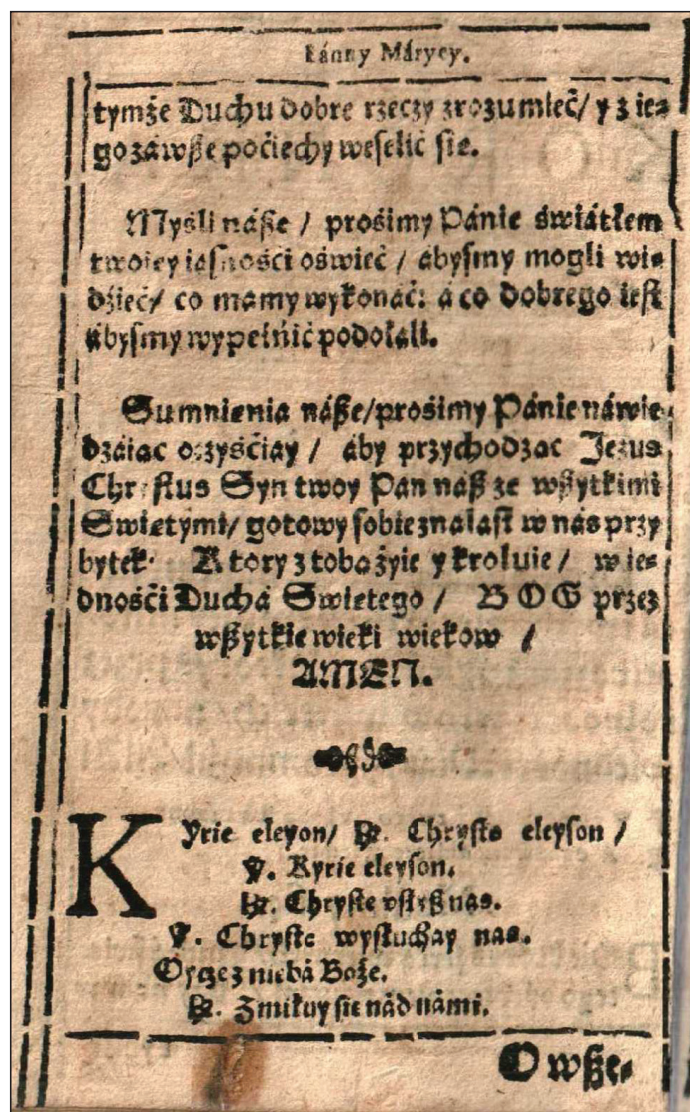 Pánny Máryey.
tymże Duchu dobre rzeczy zrozumieć/ y z ie⸗
go záwsze poćiechy weselić sie.
Myśli násze / prośimy Pánie świátłem
twoiey iásności oświeć / ábysmy mogli wi⸗
dźieć/ co mamy wykonáć: á co dobrego iest
ábysmy wypełnić podołáli.
Sumnienia násze/prośimy Pánie náwie⸗
dzáiac oczyśćiay / aby przychodzac Jezus
Chrystus Syn twoy Pan nász ze wszytkimi
Swietymi/ gotowy sobie znalasł w nas przy
bytek. Ktory z toba żyie y kroluie / w ie⸗
dnośći Ducha Swietego / BOG przez
wszytkie wieki wiekow /
AMEN.
Kyrie eleyon/ ℟. Chryste eleyson /
℣. Kyrie eleyson.
℟. Chryste vslysz nas.
℣. Chryste wysłuchay nas.
Oycze z niebá Boże.
℟. Zmiłuy sie nád námi.
O wsze⸗